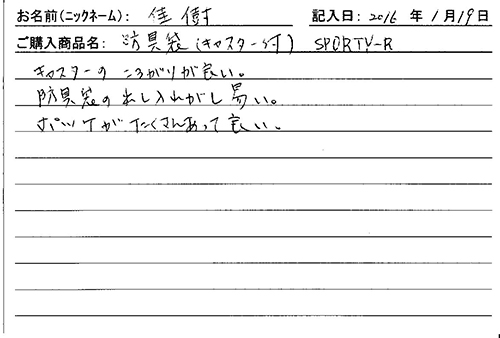 お名前(ニックネーム): 佳樹 記入日: 2016 年 1月19日
ご購入商品名: 防具袋(キャスター付) SPORTY-R
キャスターの ころがりが良い。
防具袋の出し入れがし易い。
ポッケがたくさんあって良い。